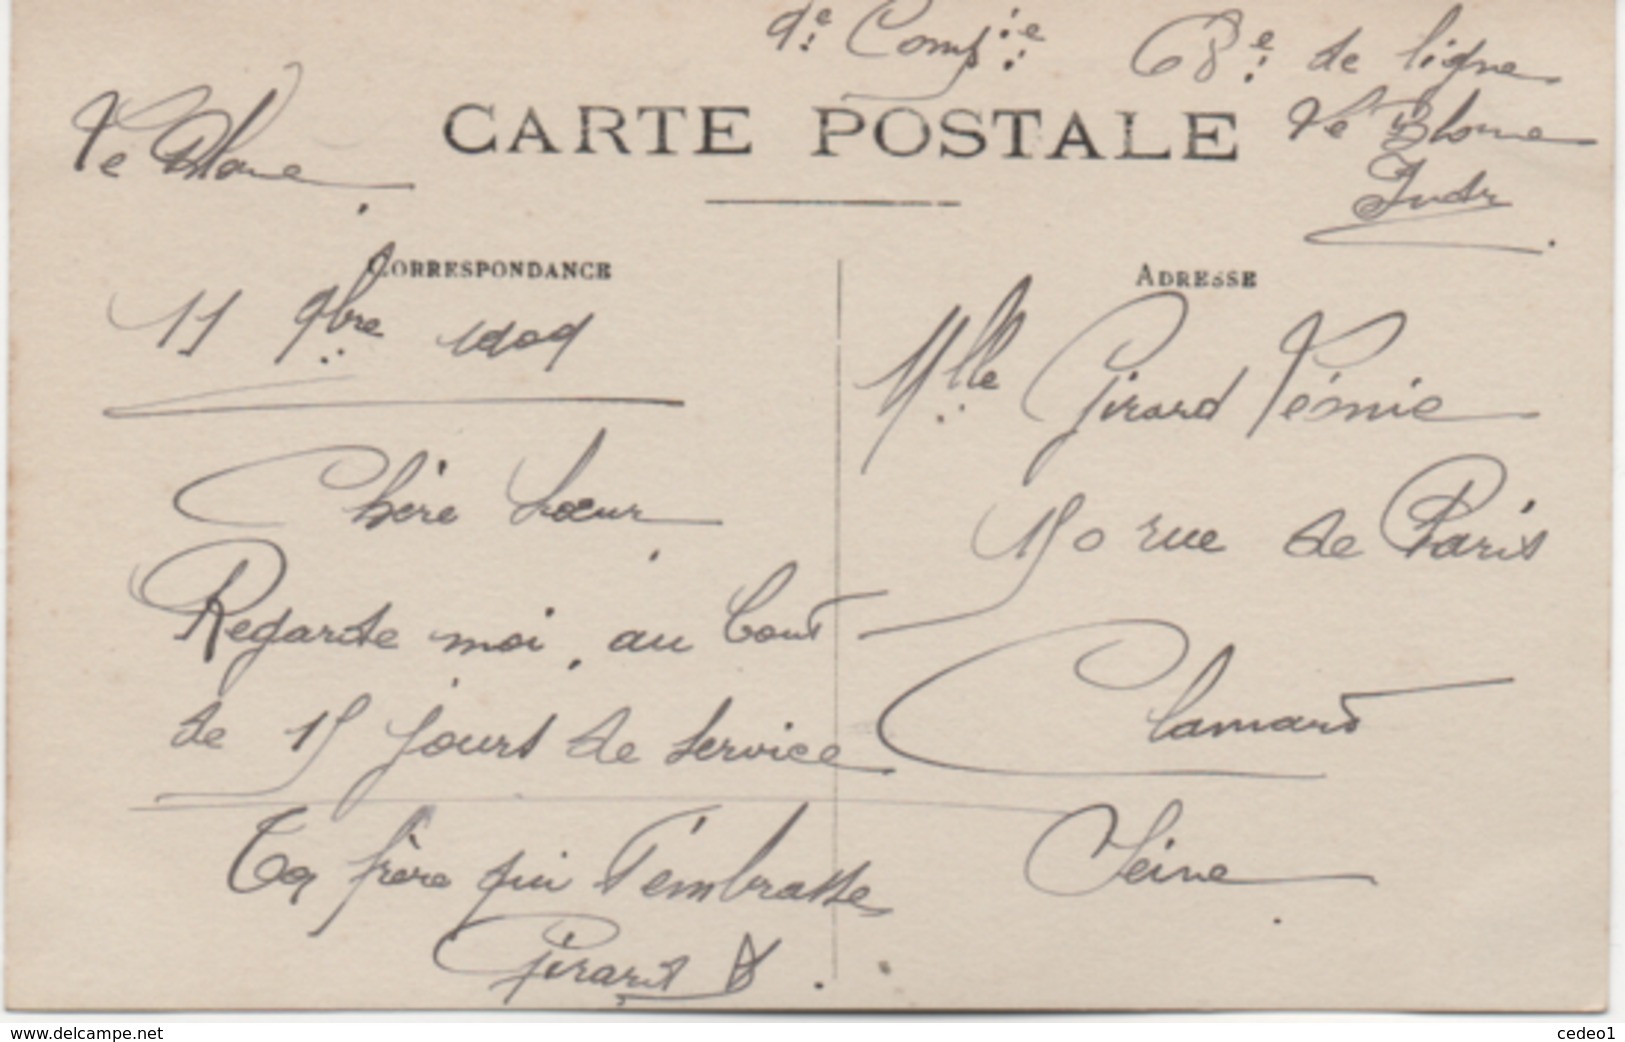 9e Compie 68e de ligne
Le Blanc
Indre
CARTE POSTALE
Le Blanc
CORRESPONDANCE
11 9bre 1909
Chère Sœur
Regarde moi, au bout
de 15 jours de service
Ton frère qui t'embrasse
Girard
ADRESSE
Mlle Girard Noémie
150 rue de Paris
Clamart
Seine
www.delcampe.net
cedeo1